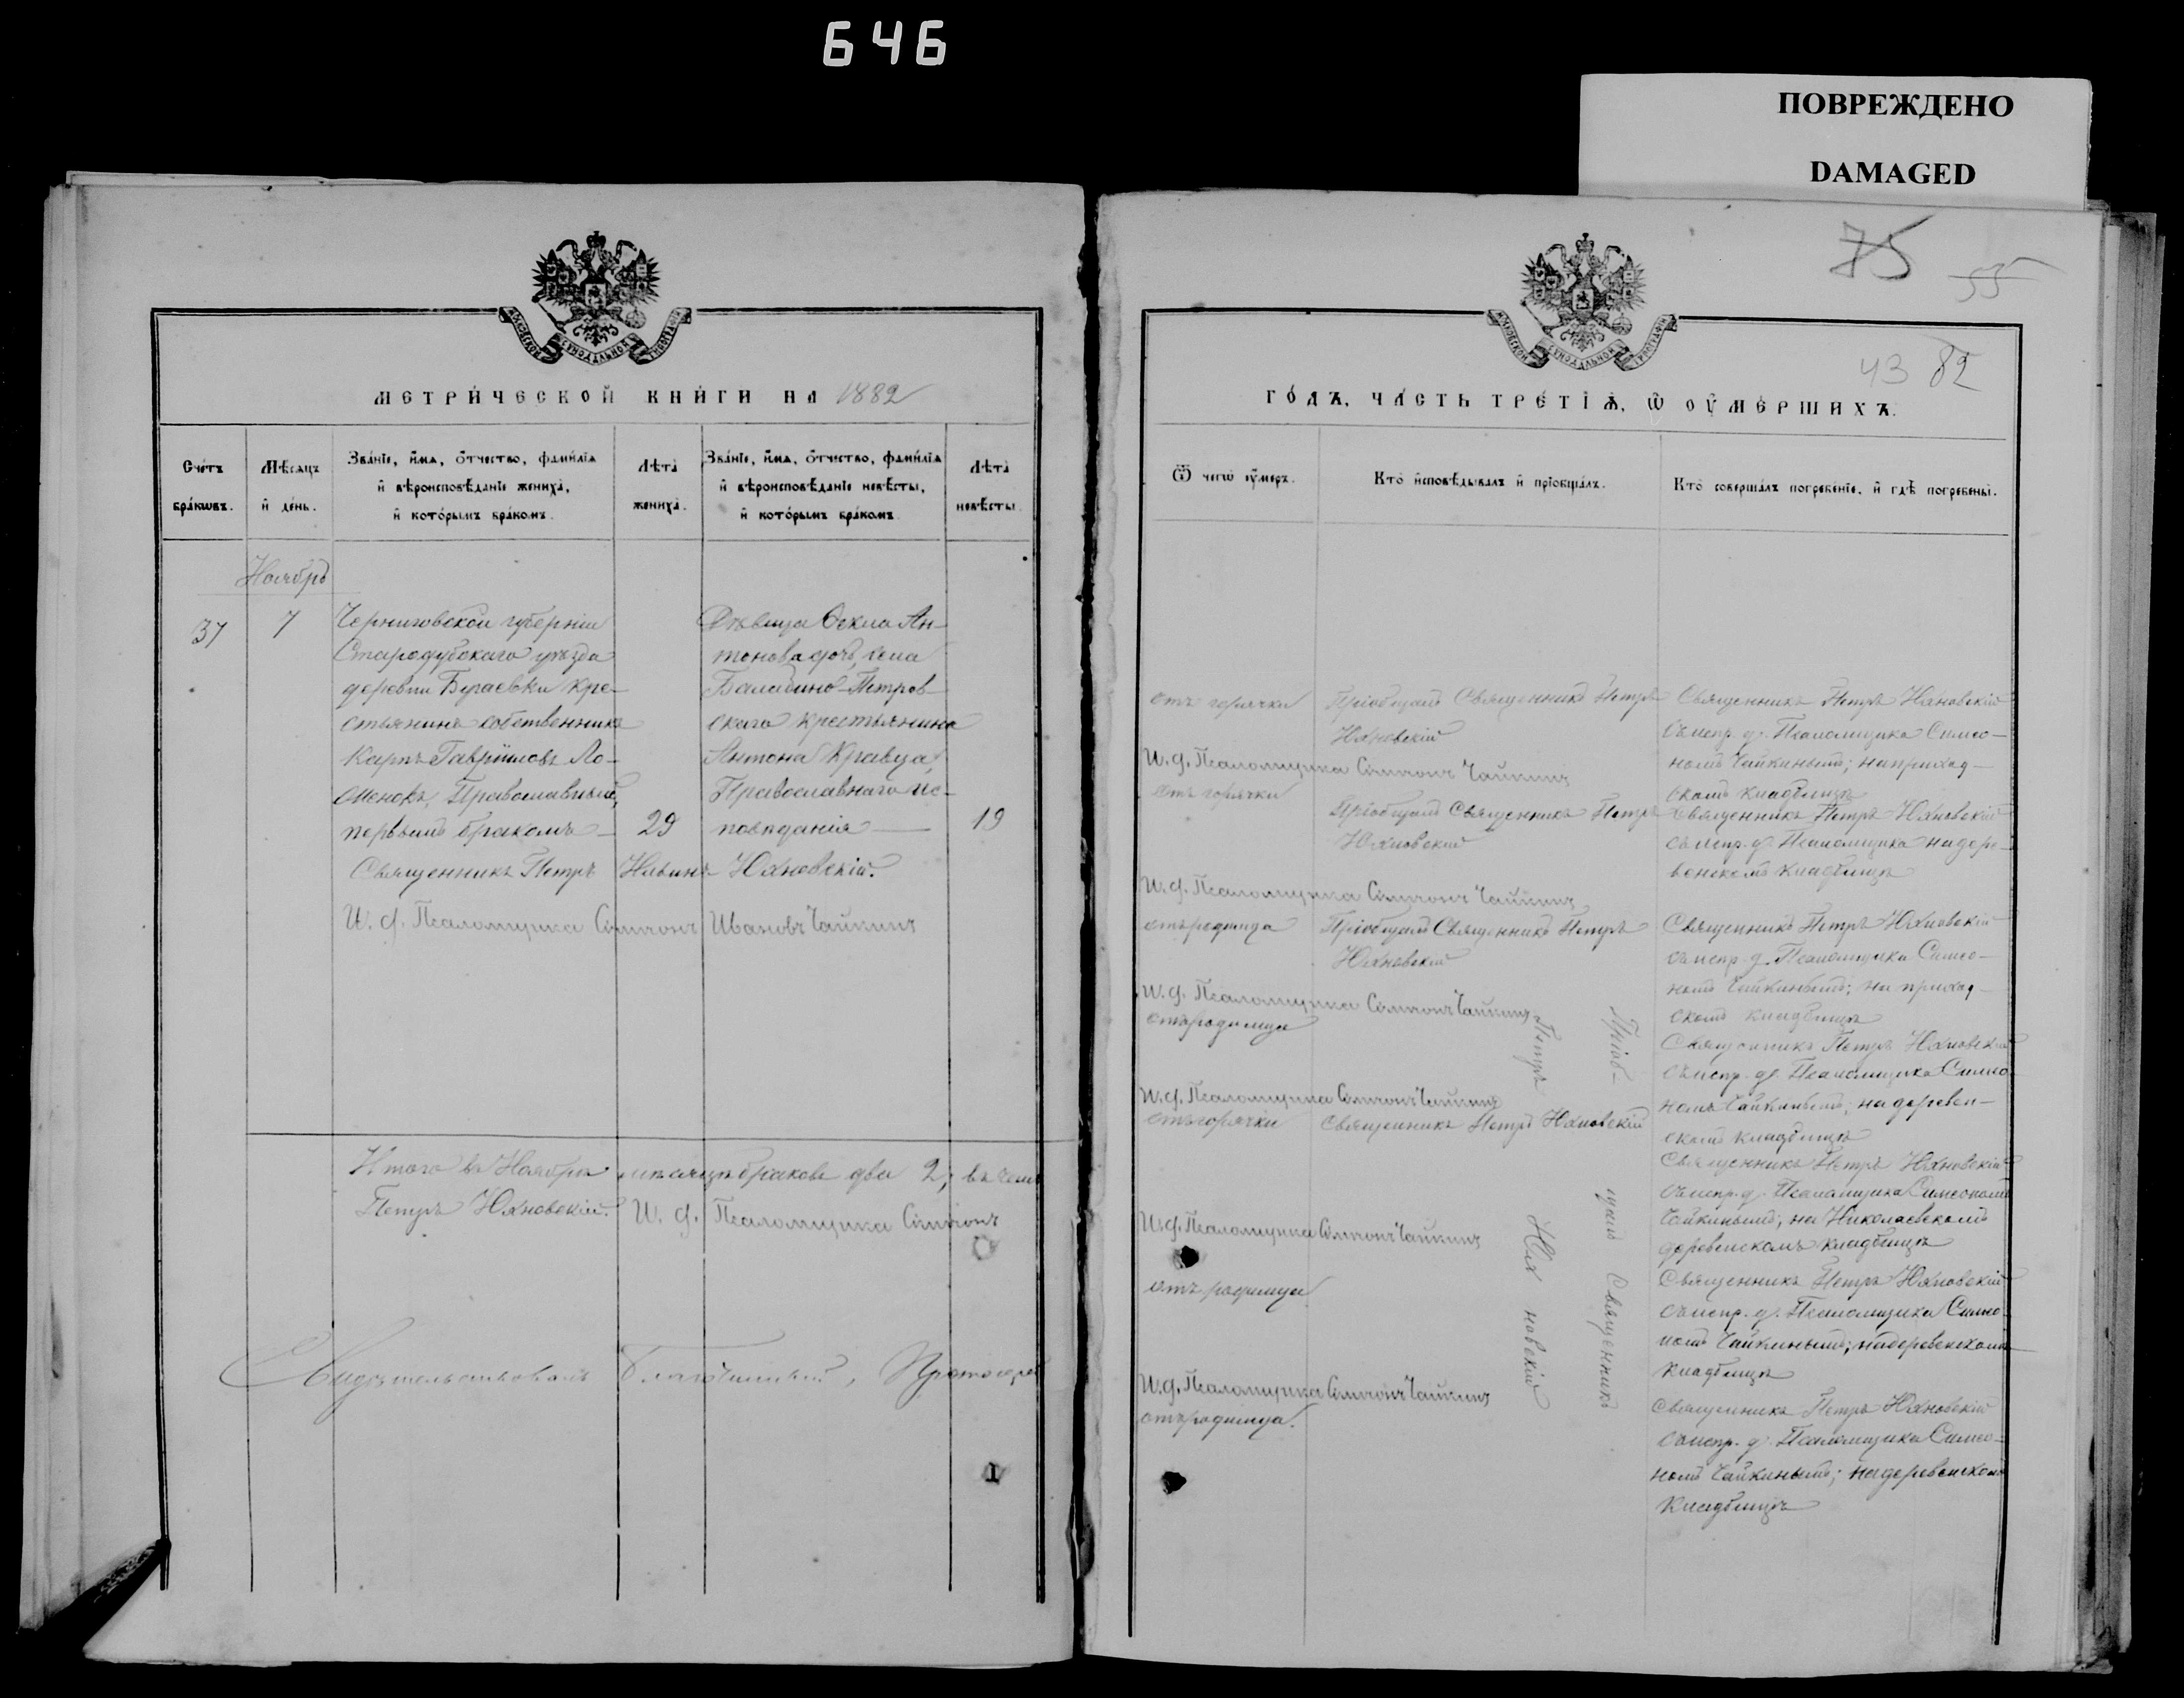 646
ПОВРЕЖДЕНО
DAMAGED
МЕТРИ́ЧЕСКОЙ КНИ́ГИ НА 1882
Сче́тъ бра́кωвъ.
Мѣ́сяцъ и҆ де́нь.
Зва́нїе, и҆́мѧ, ѻ҆́тчество, фами́лїѧ и҆ вѣроисповѣ́данїе жениха̀, и҆ кото́рымъ бра́комъ.
Лѣта̀ жениха̀.
Зва́нїе, и҆́мѧ, ѻ҆́тчество, фами́лїѧ и҆ вѣроисповѣ́данїе невѣ́сты, и҆ кото́рымъ бра́комъ.
Лѣта̀ невѣ́сты.
Ноябрь
37
7
Черниговской губерніи
Стародубскаго уѣзда
деревни Бугаевки кре-
стьянинъ собственникъ
Карпъ Гавріиловъ Ло-
сменокъ, Православный,
первымъ бракомъ
29
Дѣвица Ѳекла Ан-
тонова дочь, села
Баладино-Петров-
скаго крестьянина
Антона Кравца,
Православнаго ис-
повѣданія
19
Священникъ Петръ Юхновскій.
И. д. Псаломщика Симеонъ Ивановъ Чайкинъ
Итого въ Ноябрѣ мѣсяцѣ браковъ два 2; въ чемъ
Петръ Юхновскій. И. д. Псаломщика Симеонъ
Свидѣтельствовалъ Благочинный, Протоіерей
75
55
43 82
ГО́ДЪ, ЧА́СТЬ ТРЕ́ТЇѦ, Ѡ ОУ҆МЕ́РШИХЪ.
Ѿ чегѡ̀ ᲂу҆́меръ.
Кто̀ и҆сповѣ́дывалъ и҆ прїобща́лъ.
Кто̀ соверша́лъ погребе́нїе, и҆ гдѣ̀ погребены̀.
отъ горячки
Пріобщалъ Священникъ Петръ
Юхновскій
Священникъ Петръ Юхновскій
съ испр. д. Псаломщика Симео-
номъ Чайкинымъ; на приход-
скомъ кладбищѣ
И. д. Псаломщика Симеонъ Чайкинъ
отъ горячки
Пріобщалъ Священникъ Петръ
Юхновскій
Священникъ Петръ Юхновскій
съ испр. д. Псаломщика на дере-
венскомъ кладбищѣ
И. д. Псаломщика Симеонъ Чайкинъ
отъ родимца
Пріобщалъ Священникъ Петръ
Юхновскій
Священникъ Петръ Юхновскій
съ испр. д. Псаломщика Симео-
номъ Чайкинымъ; на приход-
скомъ кладбищѣ
И. д. Псаломщика Симеонъ Чайкинъ
отъ родимца
Священникъ Петръ Юхновскій
съ испр. д. Псаломщика Симео-
номъ Чайкинымъ; на деревен-
скомъ кладбищѣ
И. д. Псаломщика Симеонъ Чайкинъ
отъ горячки
Священникъ Петръ Юхновскій
Священникъ Петръ Юхновскій
съ испр. д. Псаломщика Симеономъ
Чайкинымъ; на Николаевскомъ
деревенскомъ кладбищѣ
И. д. Псаломщика Симеонъ Чайкинъ
отъ родимца
Священникъ Петръ Юхновскій
съ испр. д. Псаломщика Симео-
номъ Чайкинымъ; на деревенскомъ
кладбищѣ
И. д. Псаломщика Симеонъ Чайкинъ
отъ родимца.
Священникъ Петръ Юхновскій
съ испр. д. Псаломщика Симео-
номъ Чайкинымъ; на деревенскомъ
кладбищѣ
Пріоб-
щалъ Священникъ
Петръ
Юх новскій